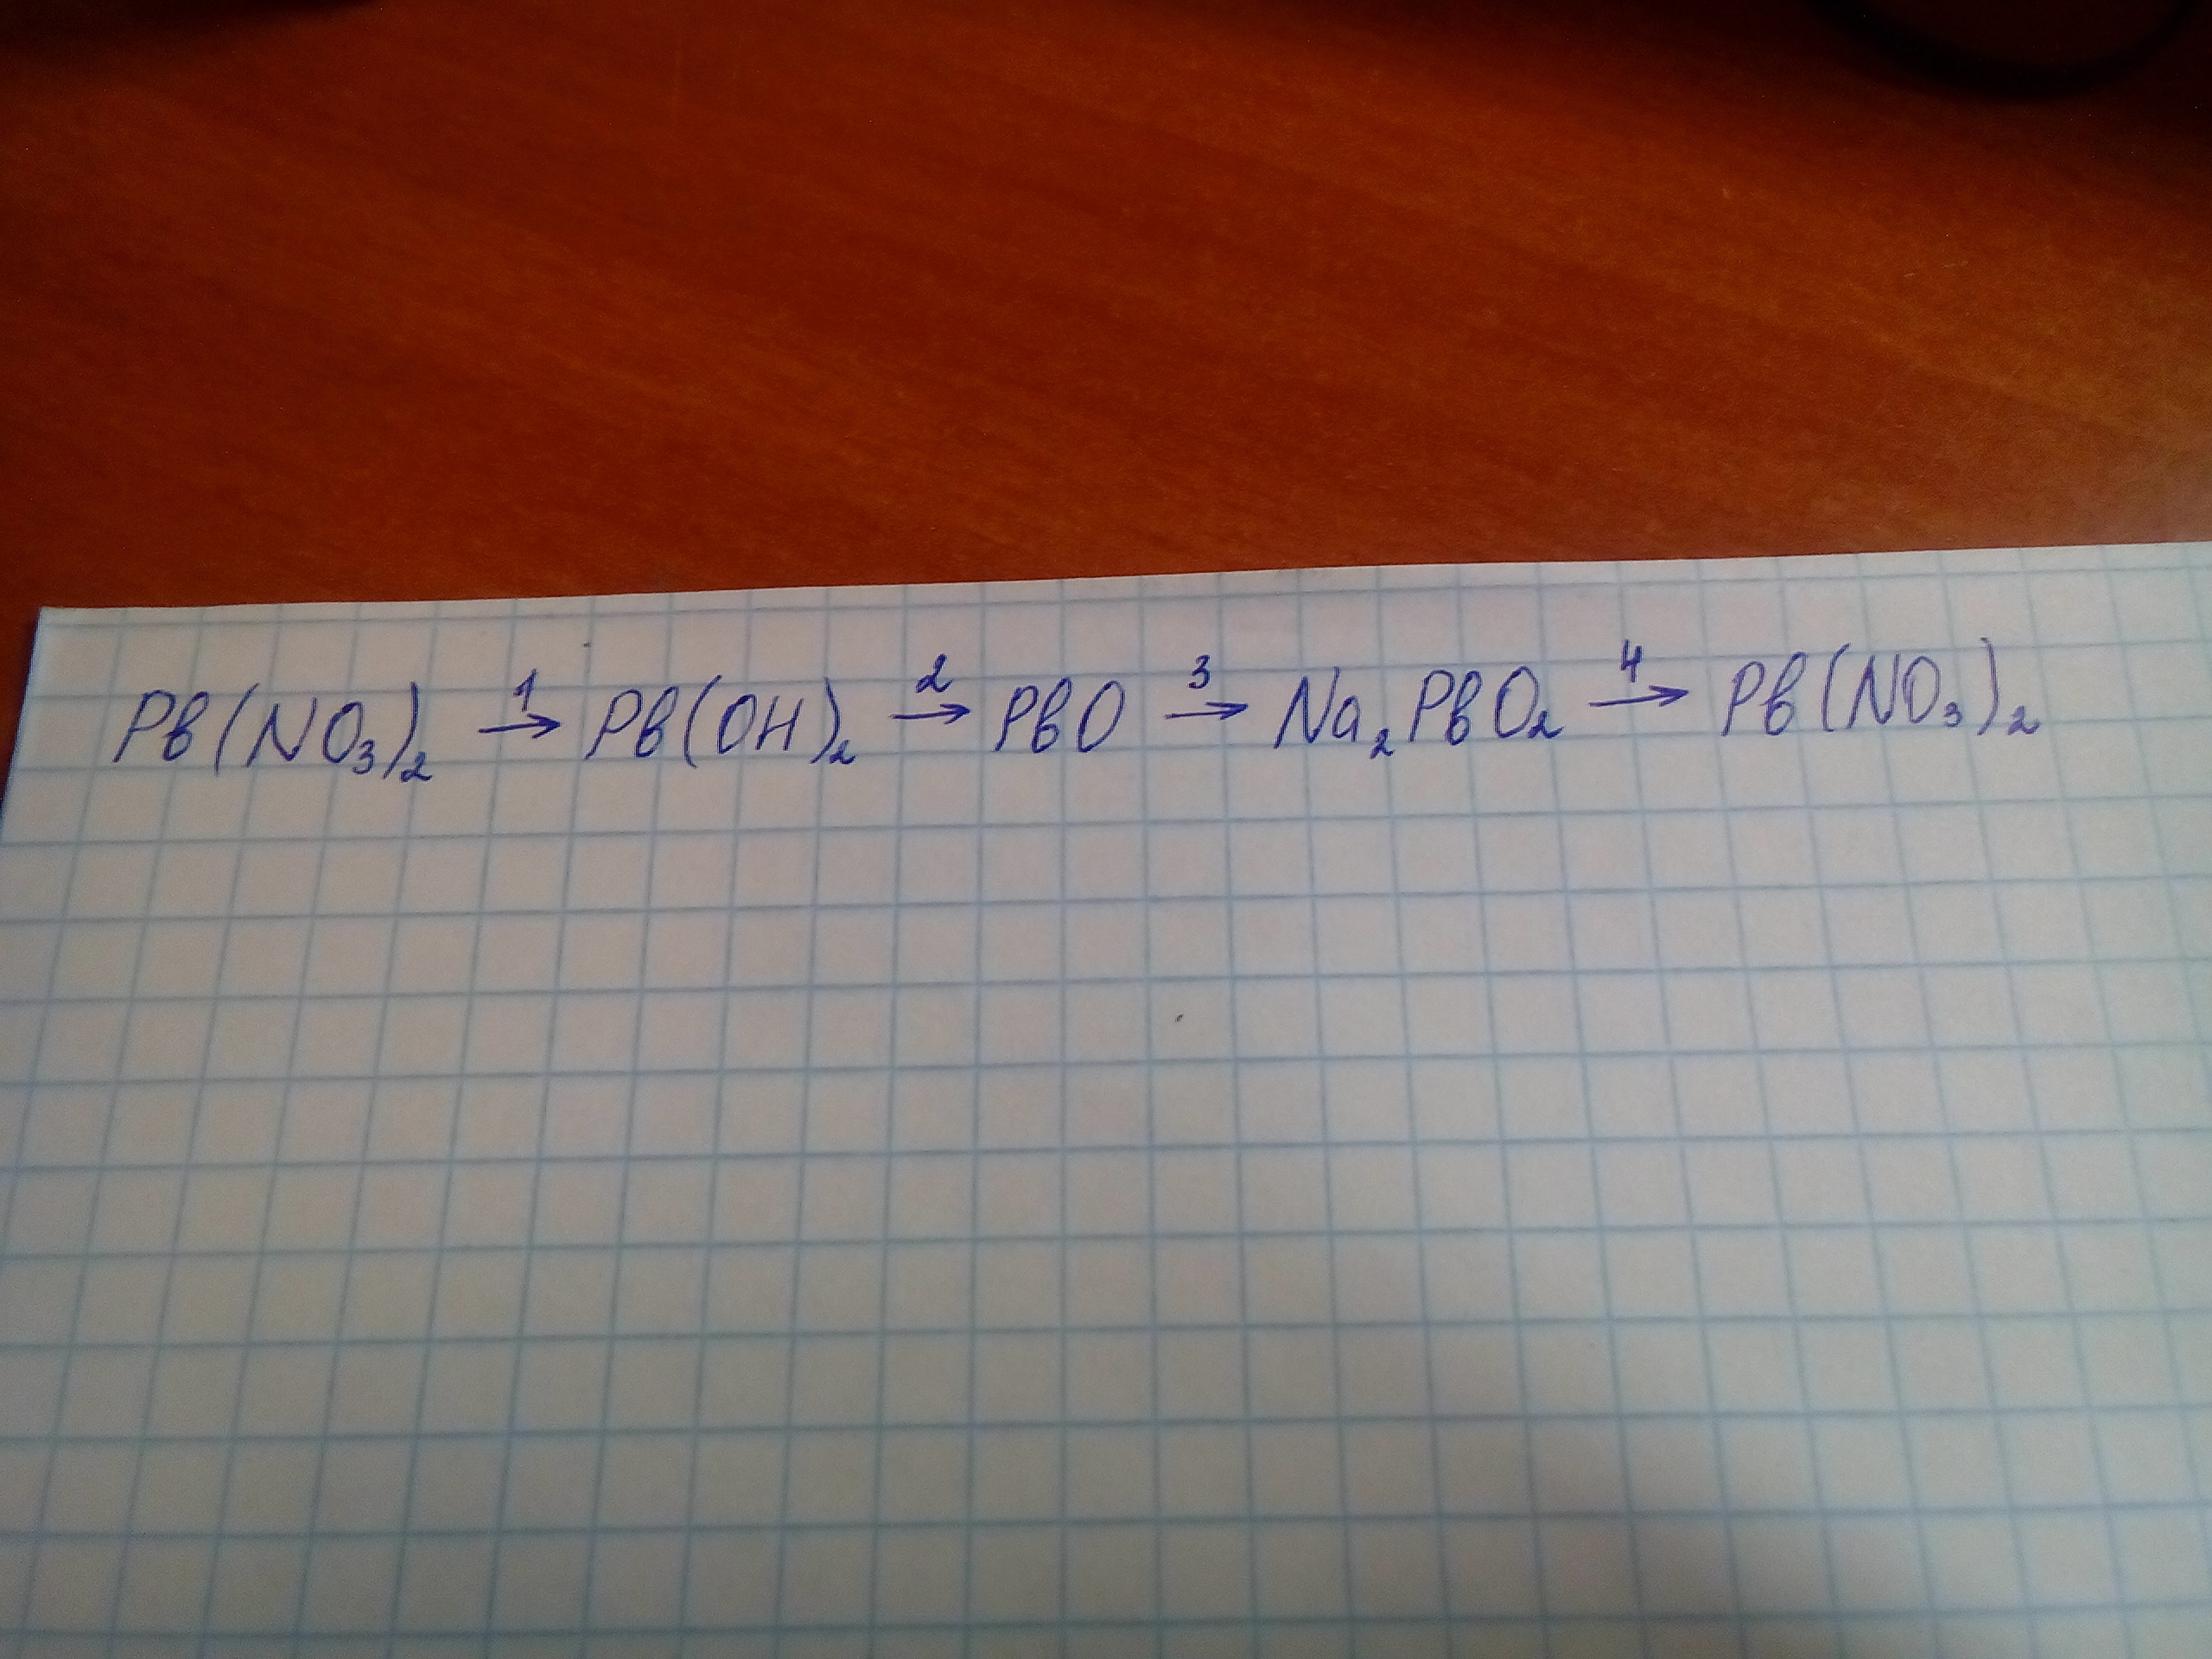 Pb(NO₃)₂ →¹ Pb(OH)₂ →² PbO →³ Na₂PbO₂ →⁴ Pb(NO₃)₂